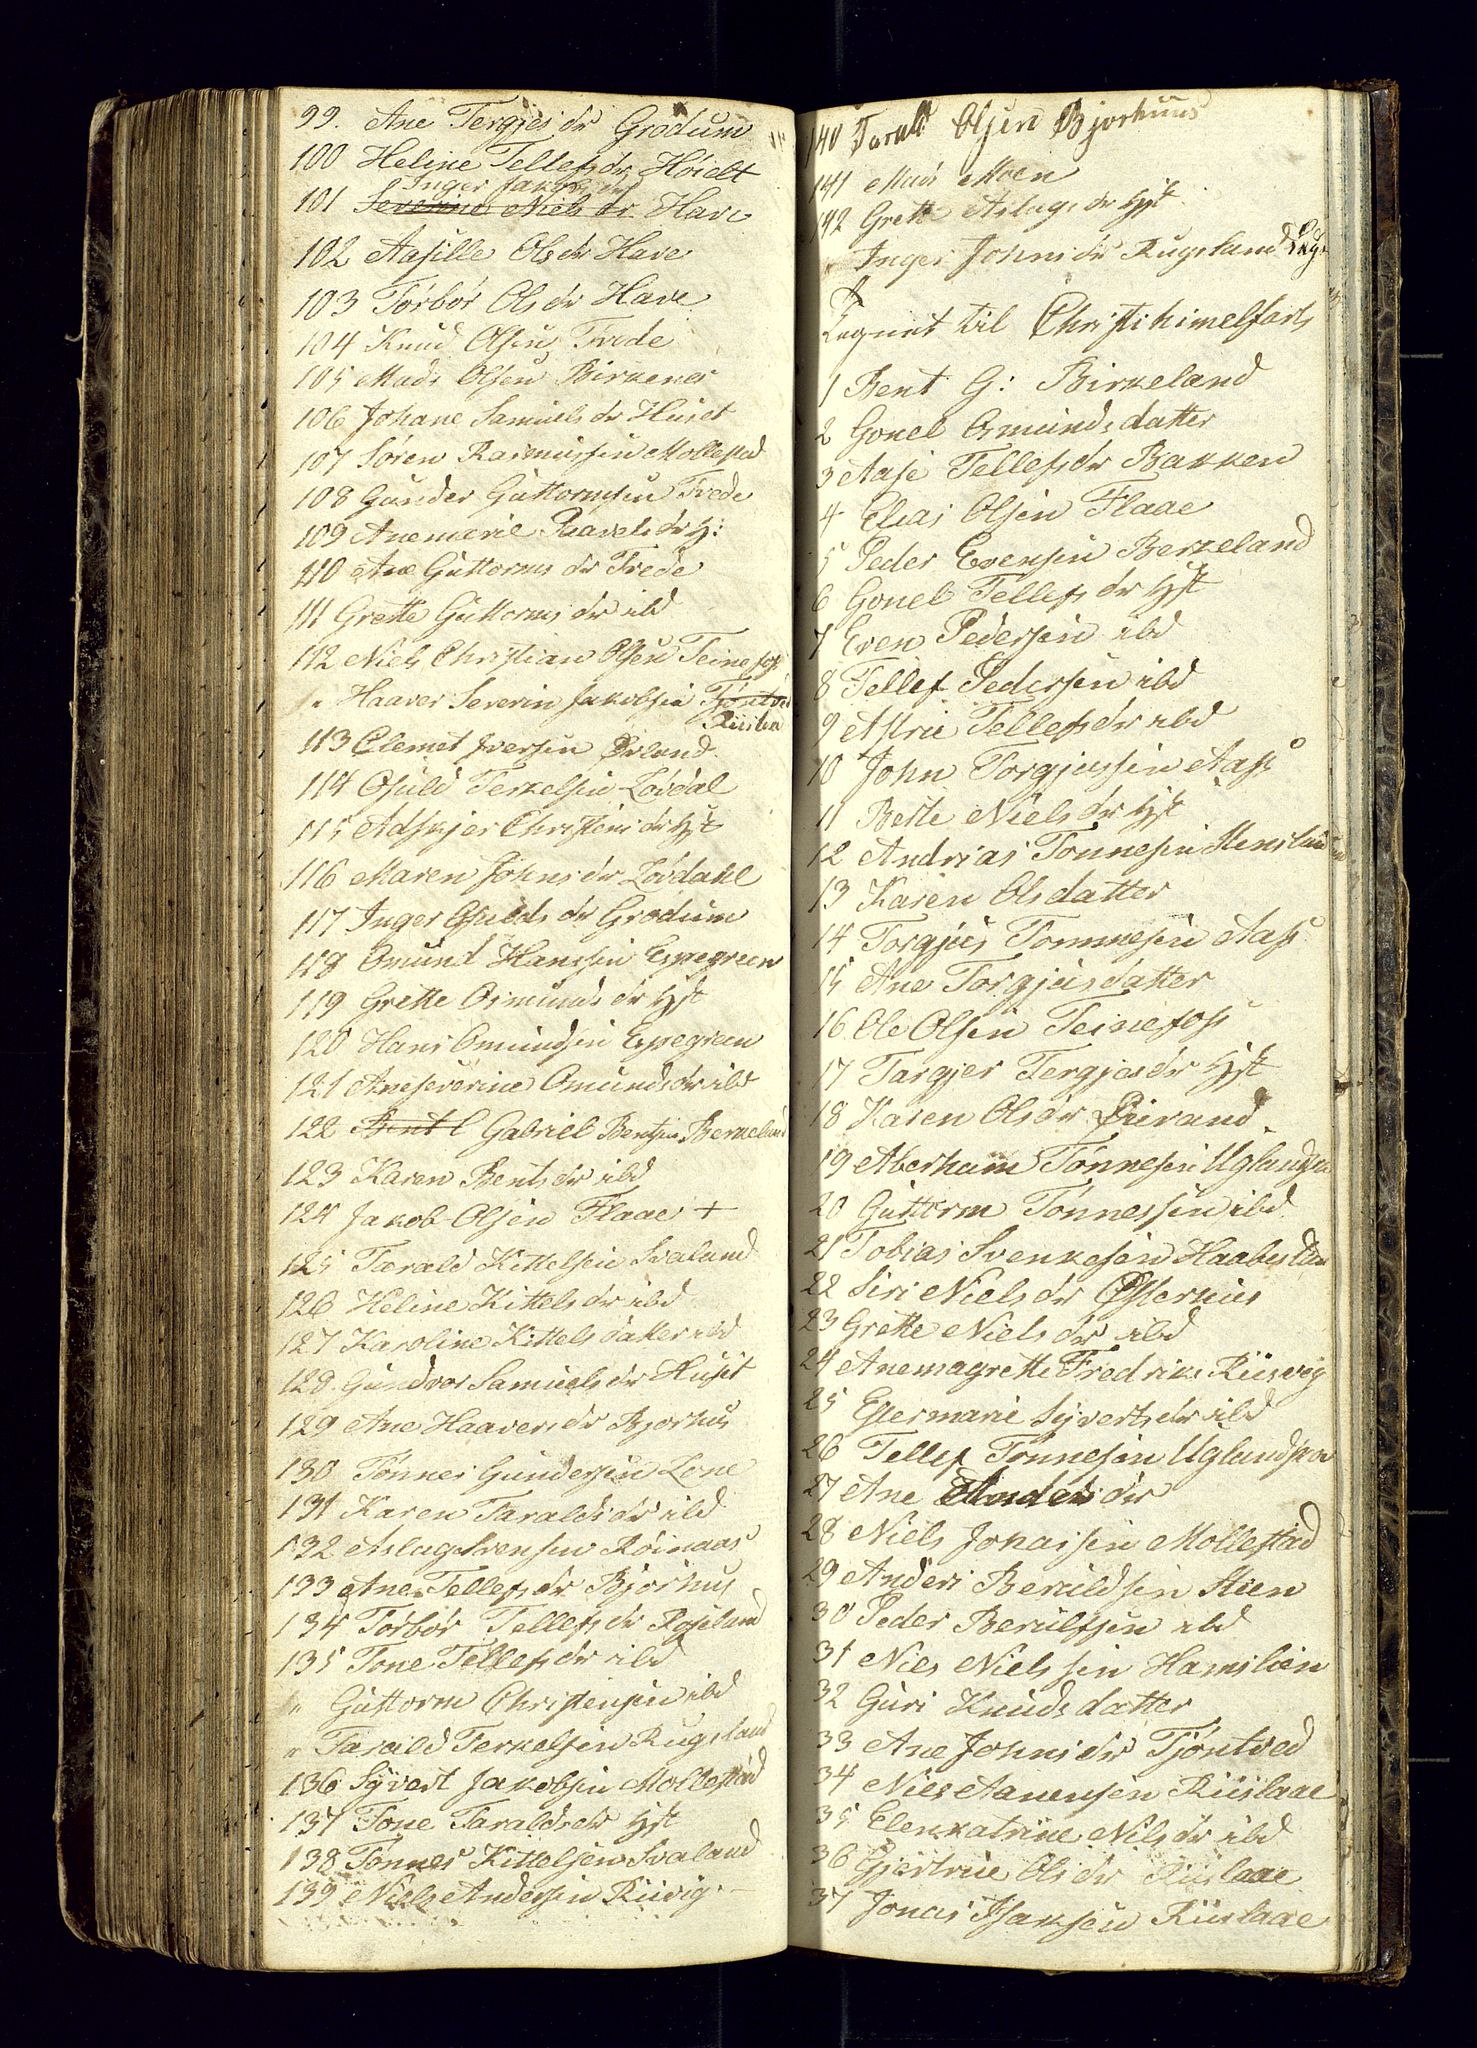 99. Ane Tergjes dr Grødum
100 Heline Tellefs dr Høielt
Inger Jakobs dr
101 Severine Niels dr Have
102 Aasille Ols dr Have
103 Torbor Ols dr Have
104 Knud Olsen Trede
105 Mads Olsen Birkenes
106 Johane Samuels dr Huset
107 Søren Rasmussen Mollestad
108 Gunder Guttormsen Trede
109 Anemarie Paavels dr H:
110 Ane Guttorms dr Trede
111 Grette Guttorms dr ibd
112 Niels Christian Olsen Teinefos
" Haaver Severin Jakobsen Tjontved
Riislaa
113 Clemet Iversen Øvland
114 Osuld Terkelsen Lövdal
115 Adskjer Christens dr Hst
116 Maren Johns dr Lövdahl
117 Inger Osulds dr Grødum
118 Omund Hanssen Espegreen
119 Grette Osmunds dr Hst
120 Hans Omundsen Espegreen
121 Aneseverine Omunds dr ibd
122 Bent Gabriel Bentsen Berkeland
123 Karen Bents dr ibd
124 Jakob Olsen Flaae +
125 Tarald Kittelsen Svaland
126 Heline Kittels dr ibd
127 Karoline Kittels datter ibd
128 Gundvor Samuels dr Huset
129 Ane Haavers dr Bjorhus
130 Tönnes Gundersen Lone
131 Karen Taralds dr ibd
132 Aslag Svensen Röinaas
133 Ane Tellefs dr Bjorhus
134 Torbör Tellefs dr Roseland
135 Tone Tellefs dr ibd
" Guttorm Christensen ibd
" Tarald Terkelsen Rugsland
136 Syvert Jakobsen Mollestad
137 Tone Taralds dr Hst
138 Tönnes Kittelsen Svaland
139 Niels Andersen Riivig
140 Tarald Olsen Bjorhuus
141 Mads Moen
142 Grette Aslags dr Hst
" Inger Johns dr Rugsland
Tegnet til Christihimelfarts
1 Bent G: Birkeland
2 Gonel Osmunds datter
3 Aase Tellefs dr Bakken
4 Elias Olsen Flaae
5 Peder Evensen Berkeland
6 Gonel Tellefs dr Hst
7 Even Pedersen ibd
8 Tellef Pedersen ibd
9 Astrie Tellefs dr ibd
10 John Torgjussen Aass
11 Berte Niels dr Hst
12 Andrias Tonnesen
13 Karen Olsdatter
14 Torgjus Tonnnesen Aass
15 Ane Torgjusdatter
16 Ole Olsen Teinefoss
17 Targjer Tergjes dr Hst
18 Karen Ols dr
19 Aberham Tönnesen Uglands
20 Guttorm Tönnessen ibd
21 Tobias Svenkesen Haabesland
22 Siri Niels dr Østerhus
23 Grette Niels dr ibd
24 Anemagrette Fredriks Riisvig
25 Estermarie Syverts dr ibd
26 Tellef Tonnesen Uglands
27 Ane Anders dr
28 Niels Johassen Mollestad
29 Anders Beruldsen Stien
30 Peder Berulfsen ibd
31 Nies Nielssen Hamslien
32 Guri Knudsdatter
33 Ane Johns dr Tjöntved
34 Niels Aanensen Riislaae
35 Elenkatrine Nils dr ibd
36 Gjertrue Ols dr Riislaae
37 Jonas Isaksen Riislaae